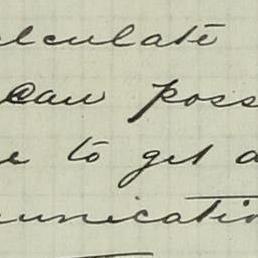 lculate
can poss
e to get a
munication